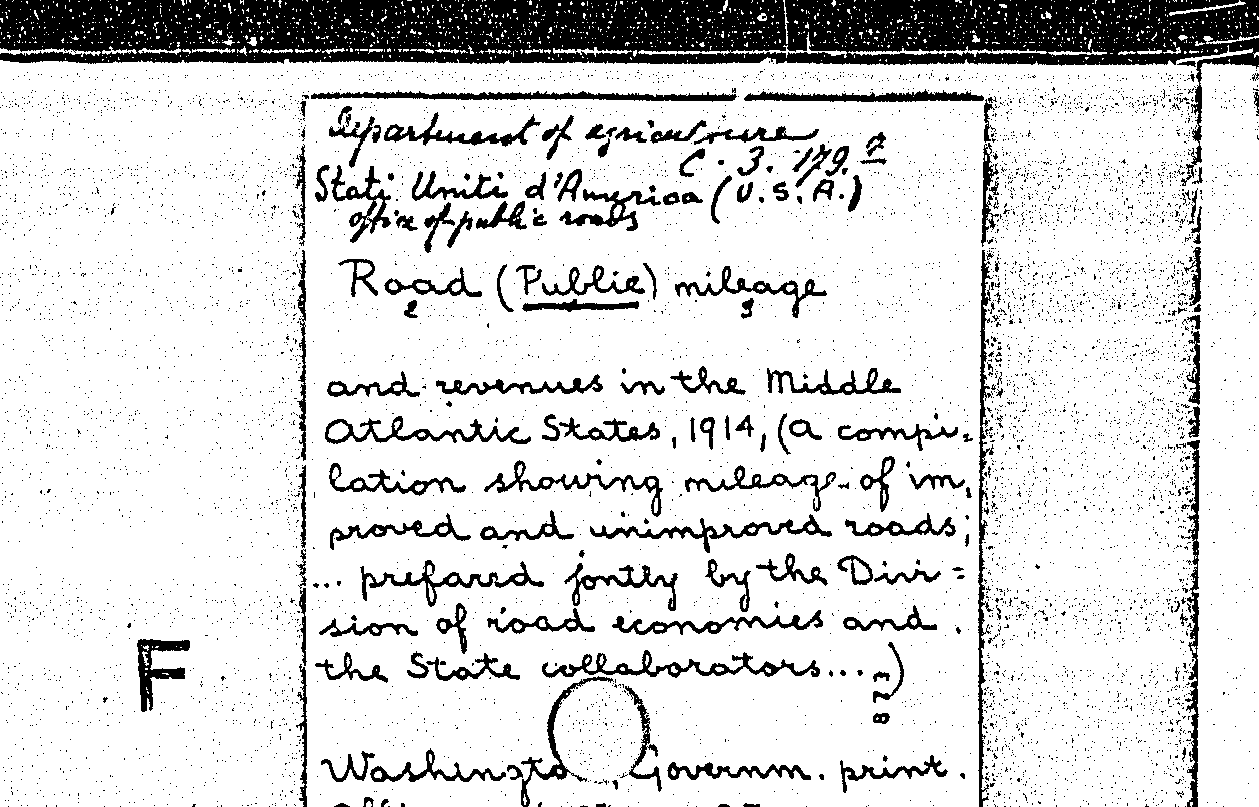 Department of agriculture
C. 3. 179. 7
Stati Uniti d'America (U.S.A.)
office of public roads
Road (Public) mileage
2 3
and revenues in the Middle
Atlantic States, 1914, (A compi=
lation showing mileage of im,
proved and unimproved roads;
... prefared jontly by the Divi=
sion of road economies and.
the State collaborators...)
873
F
Washington, Governm. print.